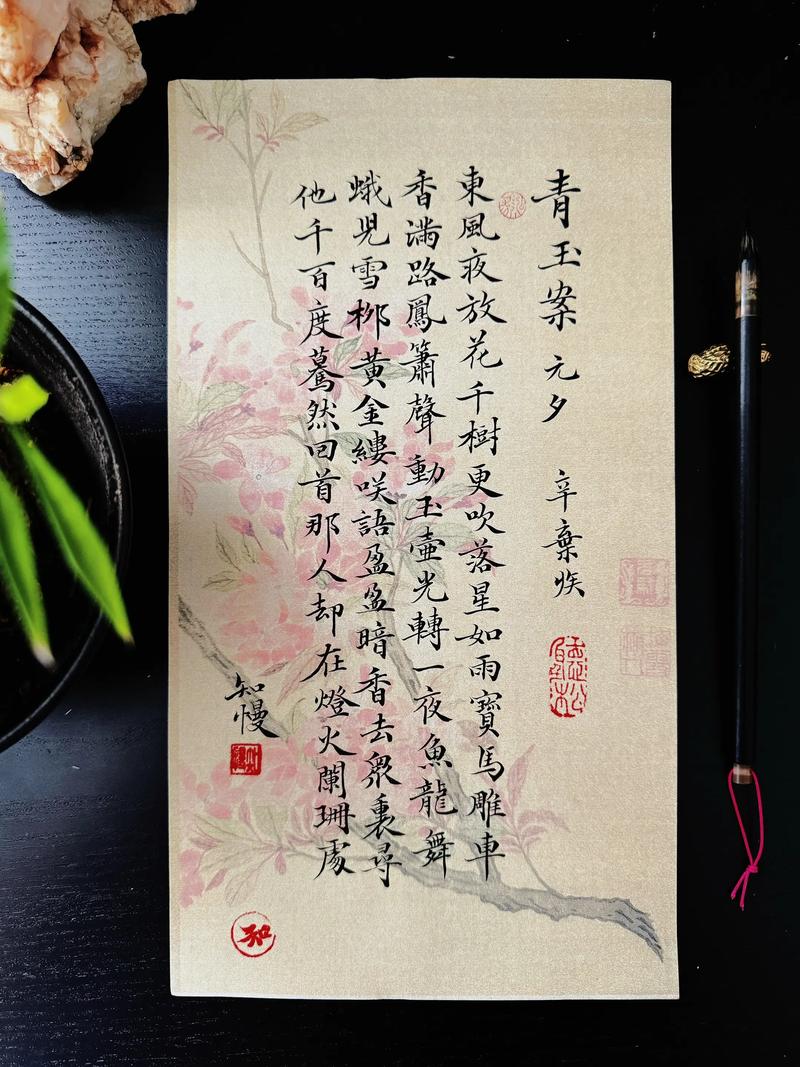 青玉案 元夕 辛棄疾
東風夜放花千樹更吹落星如雨寶馬雕車
香滿路鳳簫聲動玉壺光轉一夜魚龍舞
蛾兒雪柳黃金縷咲語盈盈暗香去衆裏尋
他千百度驀然回首那人却在燈火闌珊處
知慢
知